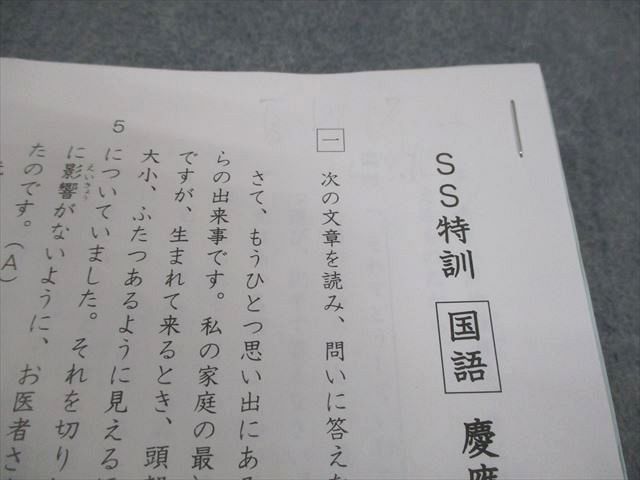 SS特訓 国語 慶應
一 次の文章を読み、問いに答え
さて、もうひとつ思い出にある
らの出来事です。私の家庭の最
ですが、生まれて来るとき、頭
大小、ふたつあるように見える
5 についていました。それを切り
に影響がないように、お医者さ
えいきょう
たのです。(A)